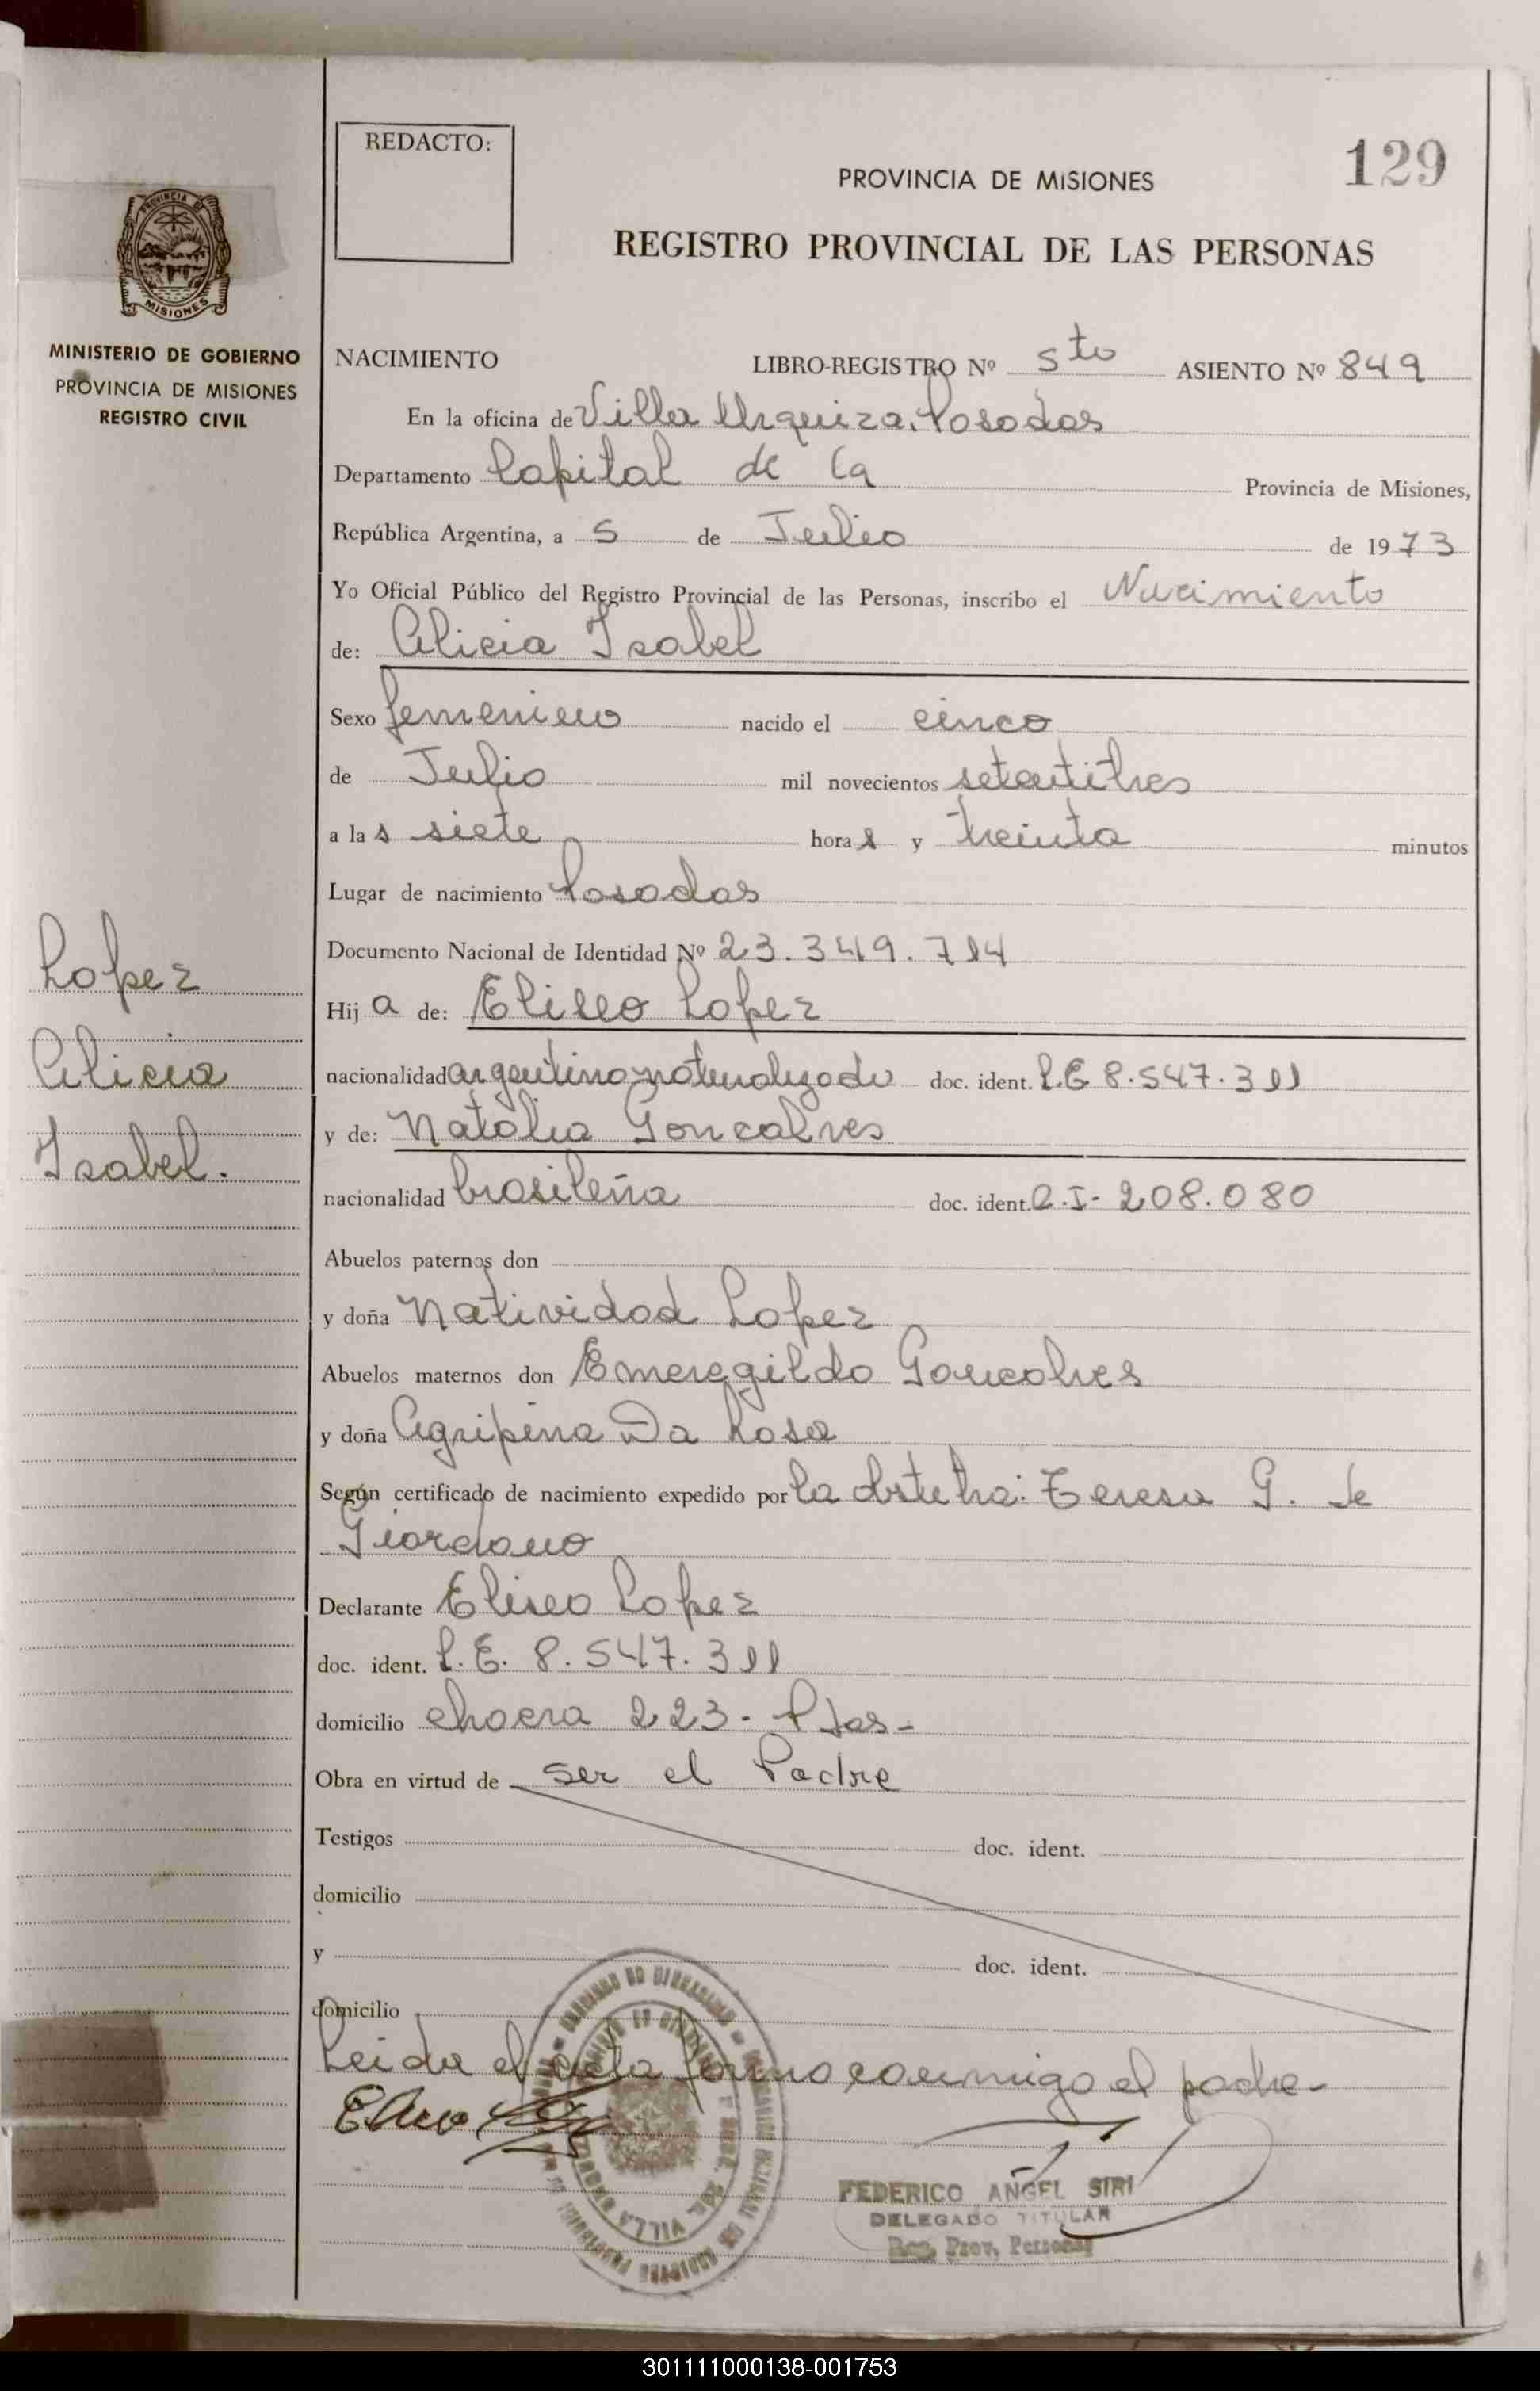 REDACTO:
129
PROVINCIA DE MISIONES
REGISTRO PROVINCIAL DE LAS PERSONAS
PROVINCIA DE
MISIONES
MINISTERIO DE GOBIERNO
PROVINCIA DE MISIONES
REGISTRO CIVIL
NACIMIENTO LIBRO-REGISTRO Nº 5to ASIENTO Nº 849
En la oficina de Villa Urquiza. Posadas
Departamento Capital de la Provincia de Misiones,
República Argentina, a 5 de Julio de 1973
Yo Oficial Público del Registro Provincial de las Personas, inscribo el Nacimiento
de: Alicia Isabel
Sexo femenino nacido el cinco
de Julio mil novecientos setentitres
a las siete horas y treinta minutos
Lugar de nacimiento Posadas
Documento Nacional de Identidad Nº 23.349.714
Hija de: Eliseo Lopez
nacionalidad argentino naturalizado doc. ident. L.E 8.547.311
y de: Natalia Goncalves
nacionalidad brasileña doc. ident. C.I- 208.080
Abuelos paternos don
y doña Natividad Lopez
Abuelos maternos don Emeregildo Goncalves
y doña Agripina Da Rosa
Según certificado de nacimiento expedido por la obstetra: Teresa G. de
Giordano
Declarante Eliseo Lopez
doc. ident. L.E. 8.547.311
domicilio chacra 223. Pdas-
Obra en virtud de ser el Padre
Testigos doc. ident.
domicilio
y doc. ident.
domicilio
Leida el acta firma conmigo el padre-
FEDERICO ANGEL SIRI
DELEGADO TITULAR
Reg. Prov. Personas
Lopez
Alicia
Isabel.
301111000138-001753